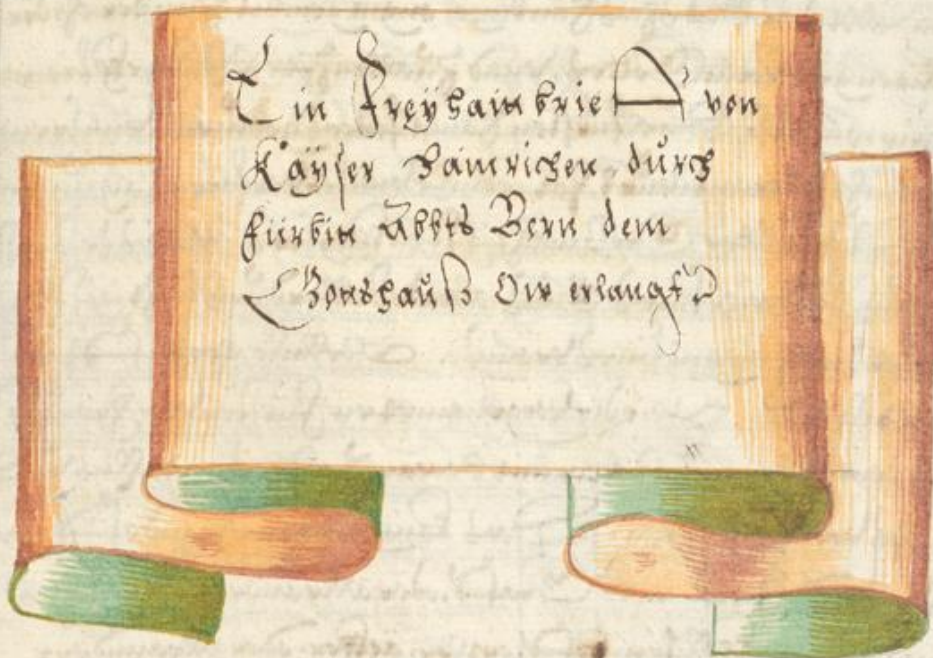 Ein Freyhaitbrief von
Kaÿser Hainrichen durch
fürbit Abbts Bern dem
Gottshauß Ow erlangt